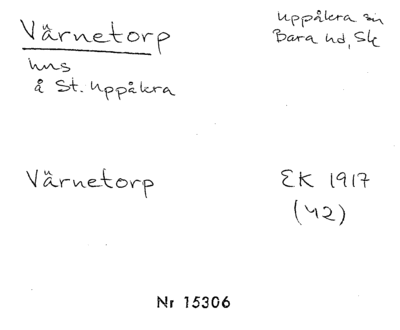 Värnetorp
Uppåkra sn
Bara hd, Sk
hus
å St. Uppåkra
Värnetorp
EK 1917
(42)
Nr 15306